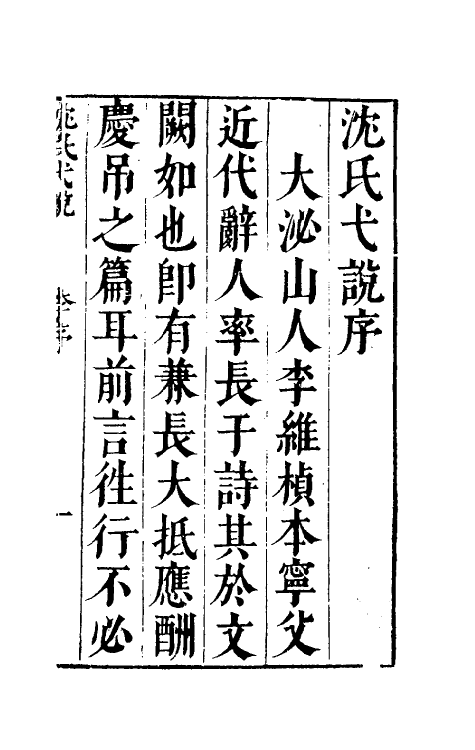 沈氏弋說序
大泌山人李維楨本寧父
近代辭人率長于詩其於文
闕如也卽有兼長大抵應酬
慶吊之篇耳前言徃行不必
沈氏弋說 李序 一